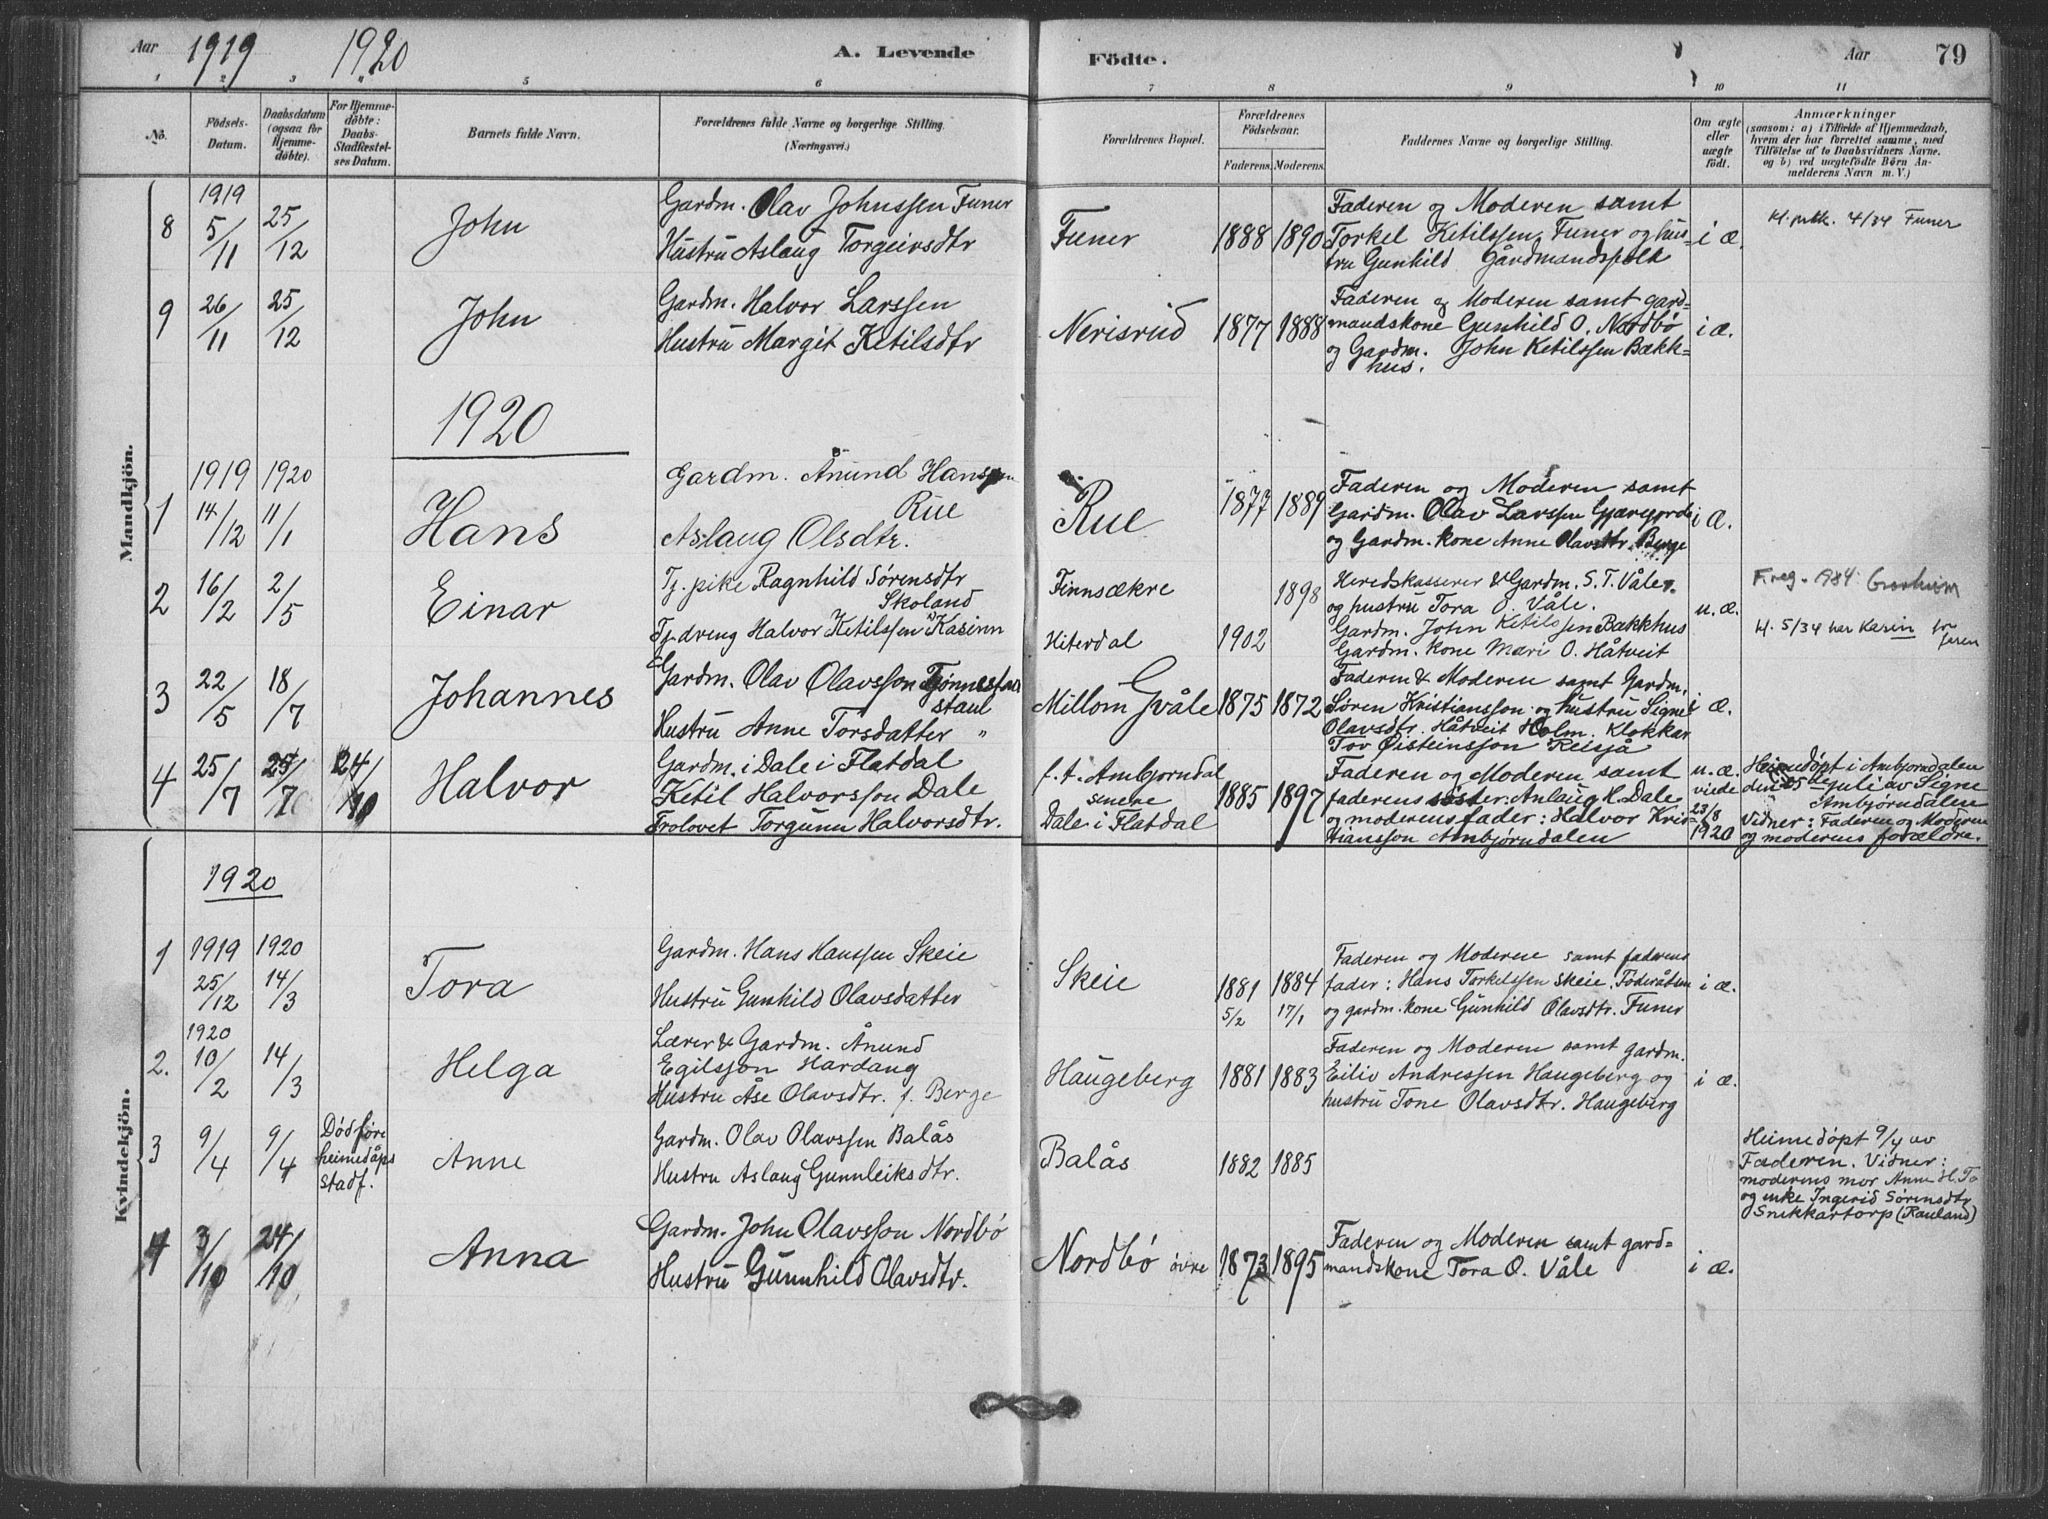 Aar 1919 1920 A. Levende Födte. Aar 79
1 2 3 4 5 6 7 8 9 10 11
No. Födsels-Datum. Daabsdatum (ogsaa for Hjemmedöbte). For Hjemmedöbte: Daabs-Stadfæstelses Datum. Barnets fulde Navn. Forældrenes fulde Navne og borgerlige Stilling. (Næringsvei.) Forældrenes Bopæl. Forældrenes Födselsaar. Faderens. Moderens. Faddernes Navne og borgerlige Stilling. Om ægte eller uægte födt. Anmærkninger (saasom: a) i Tilfælde af Hjemmedaab, hvem der har forrettet samme, med Tilföielse af to Daabsvidners Navne. og b) ved uægtefödte Børn Anmelderens Navn m. V.)
Mandkjön.
1919
8 5/11 25/12 John
Gardm. Olav Johnssen Funer
Hustru Aslaug Torgeirsdtr
Funer 1888 1890
Faderen og Moderen samt
Torkel Ketilssen Funer og hus-
tru Gunhild Gårdmandsfolk
i æ.
Kl. prkk. 4/34 Funer
9 26/11 25/12 John
Gardm. Halvor Larssen
Hustru Margit Ketilsdtr
Nerisrud 1877 1888
Faderen og Moderen samt gard-
mandskone Gunhild O. Nordbø
og Gardm. John Ketilssen Bækk-
hus.
i æ.
1920
1919 1920
1 14/12 11/1 Hans
Gardm. Ånund Hanssen
Rue
Aslaug Olsdtr.
Rue 1877 1889
Faderen og Moderen samt
Gardm. Olav Larssen
og Gardm. kone Anne Olavsdtr. Berge
i æ.
2 16/2 2/5 Einar
Tj. pike Ragnhild Sørensdtr
Skoland
Tj. dreng Halvor Ketilssen Kasinn
Finnsækre 1898
Hiterdal 1902
Heredskasserer & Gardm. S. T. Våle
og hustru Tora O. Våle.
Gardm. John Ketilssen Bækkhus
Gardm. kone Mari O. Håtveit
u. æ.
F.reg. 1984:
H. 5/34 har Karin
3 22/5 18/7 Johannes
Gardm. Olav Olavsson
staul
Hustru Anne Torsdatter "
Millom Gvåle 1875 1872
Faderen & Moderen samt Gardm.
Søren Kristiansson og hustru Signe
Olavsdtr. Håtveit Holm. Klokkar
Tov Øisteinsson Reisjå
i æ.
4 25/7 25/7 24/10 Halvor
Gardm. i Dale i Flatdal
Ketil Halvorsson Dale
Trolovet Torgunn Halvorsdtr.
f. t. Ambjørndal
senere
Dale i Flatdal
1885 1897
Faderen og Moderen samt
faderens søster: Anlaug H. Dale
og moderens fader: Halvor Kris-
tiansson Ambjørndalen
u. æ.
viede
23/8
1920
Heimedøpt i Ambjørndalen
den 25de juli av Signe
Ambjørndalen
Vidner: Faderen og Moderen
og moderens forældre.
Kvindekjön.
1920
1919 1920
1 25/12 14/3 Tora
Gardm. Hans Hanssen Skeie
Hustru Gunhild Olavsdatter
Skeie 1881 5/2 1884 17/1
Faderen og Moderen samt faderens
fader: Hans Torkelssen Skeie, Föderåtsm
og gardm. kone Gunhild Olavsdtr. Funer
i æ.
1920
2. 10/2 14/3 Helga
Lærer & Gardm. Ånund
Egilsson Hardang
Hustru Åse Olavsdtr. f. Berge
Haugeberg 1881 1883
Faderen og Moderen samt gardm.
Eiliv Andressen Haugeberg og
hustru Tone Olavsdtr. Haugeberg
i æ.
3 9/4 9/4 Død före
heimedåps
stadf.
Anne
Gardm. Olav Olavssen Balås
Hustru Aslaug Gunnleiksdtr.
Balås 1882 1885
Heimedøpt 9/4 av
Faderen. Vidner:
moderens mor Anne H. To
og enke Ingerid Sørensdtr
Snikkartorp (Rauland)
4 3/10 24/10 Anna
Gardm. John Olavsson Nordbø
Hustru Gunnhild Olavsdtr.
Nordbø övre 1873 1895
Faderen og Moderen samt gard-
mandskone Tora O. Våle
i æ.